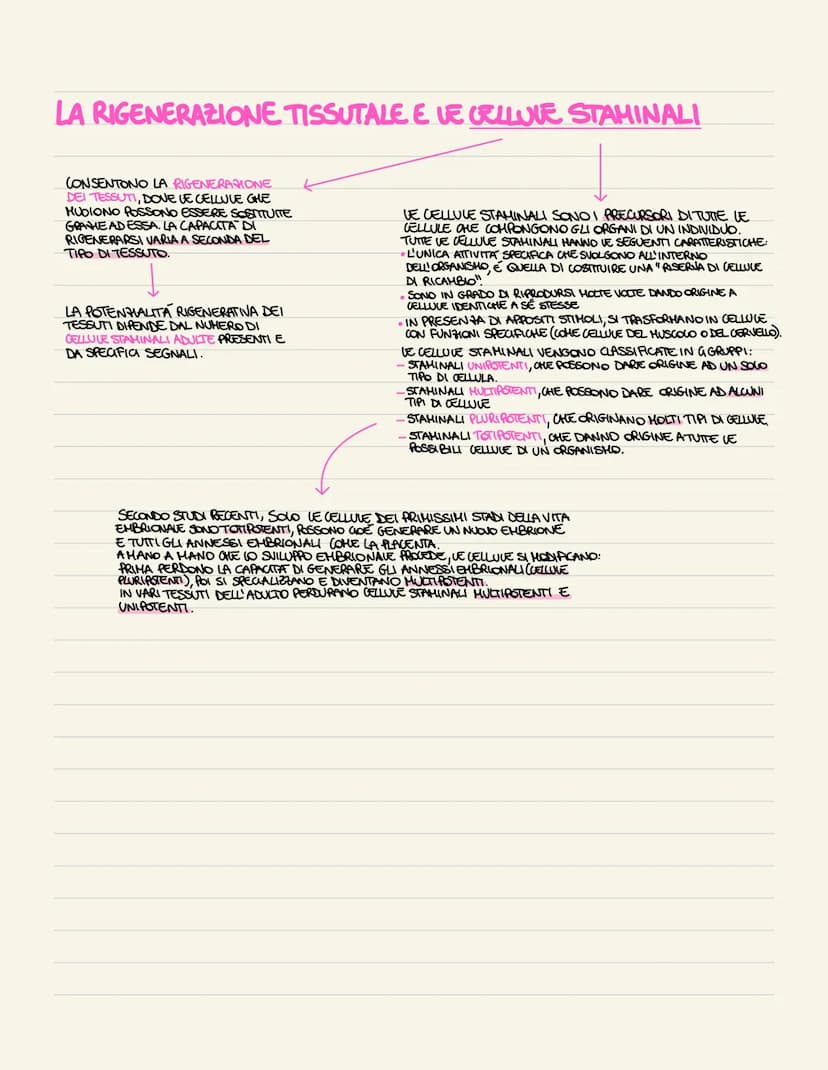 LA RIGENERAZIONE TISSUTALE E LE CELLULE STAMINALI
CONSENTONO LA RIGENERAZIONE
DEI TESSUTI, DOVE LE CELLULE CHE
MUOIONO POSSONO ESSERE SOSTITUITE
GRAZIE AD ESSA. LA CAPACITA' DI
RIGENERARSI VARIA A SECONDA DEL
TIPO DI TESSUTO.
LA POTENZIALITÁ RIGENERATIVA DEI
TESSUTI DIPENDE DAL NUMERO DI
CELLULE STAMINALI ADULTE PRESENTI E
DA SPECIFICI SEGNALI.
LE CELLULE STAMINALI SONO I PRECURSORI DI TUTTE LE
CELLULE CHE COMPONGONO GLI ORGANI DI UN INDIVIDUO.
TUTTE LE CELLULE STAMINALI HANNO LE SEGUENTI CARATTERISTICHE:
• L'UNICA ATTIVITA' SPECIFICA CHE SVOLGONO ALL'INTERNO
DELL'ORGANISMO, É QUELLA DI COSTITUIRE UNA "RISERVA DI CELLULE
DI RICAMBIO".
• SONO IN GRADO DI RIPRODURSI MOLTE VOLTE DANDO ORIGINE A
CELLULE IDENTICHE A SÉ STESSE
• IN PRESENZA DI APPOSITI STIMOLI, SI TRASFORMANO IN CELLULE
CON FUNZIONI SPECIFICHE (COME CELLULE DEL MUSCOLO O DEL CERVELLO).
LE CELLULE STAMINALI VENGONO CLASSIFICATE IN 4 GRUPPI:
– STAMINALI UNIPOTENTI, CHE POSSONO DARE ORIGINE AD UN SOLO
TIPO DI CELLULA.
– STAMINALI MULTIPOTENTI, CHE POSSONO DARE ORIGINE AD ALCUNI
TIPI DI CELLULE
– STAMINALI PLURIPOTENTI, CHE ORIGINANO MOLTI TIPI DI CELLULE.
– STAMINALI TOTIPOTENTI, CHE DANNO ORIGINE A TUTTE LE
POSSIBILI CELLULE DI UN ORGANISMO.
SECONDO STUDI RECENTI, SOLO LE CELLULE DEI PRIMISSIMI STADI DELLA VITA
EMBRIONALE SONO TOTIPOTENTI, POSSONO CIOÉ GENERARE UN NUOVO EMBRIONE
E TUTTI GLI ANNESSI EMBRIONALI COME LA PLACENTA.
A MANO A MANO CHE LO SVILUPPO EMBRIONALE PROCEDE, LE CELLULE SI MODIFICANO:
PRIMA PERDONO LA CAPACITA' DI GENERARE GLI ANNESSI EMBRIONALI (CELLULE
PLURIPOTENTI), POI SI SPECIALIZZANO E DIVENTANO MULTIPOTENTI.
IN VARI TESSUTI DELL'ADULTO PERDURANO CELLULE STAMINALI MULTIPOTENTI E
UNIPOTENTI.